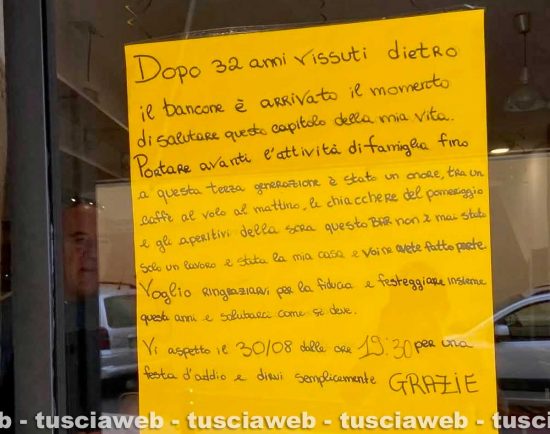 Dopo 32 anni vissuti dietro
il bancone è arrivato il momento
di salutare questo capitolo della mia vita.
Portare avanti l'attività di famiglia fino
a questa terza generazione è stato un onore, tra un
caffè al volo al mattino, le chiacchere del pomeriggio
e gli aperitivi della sera questo BAR non è mai stato
solo un lavoro e stata la mia casa e voi ne avete fatto parte.
Voglio ringraziarvi per la fiducia e festeggiare insieme
questi anni e salutarci come si deve.
Vi aspetto il 30/08 dalle ore 19:30 per una
festa d'addio e dirvi semplicemente GRAZIE
b - tusciaweb - tusciaweb - tusciaweb - tus